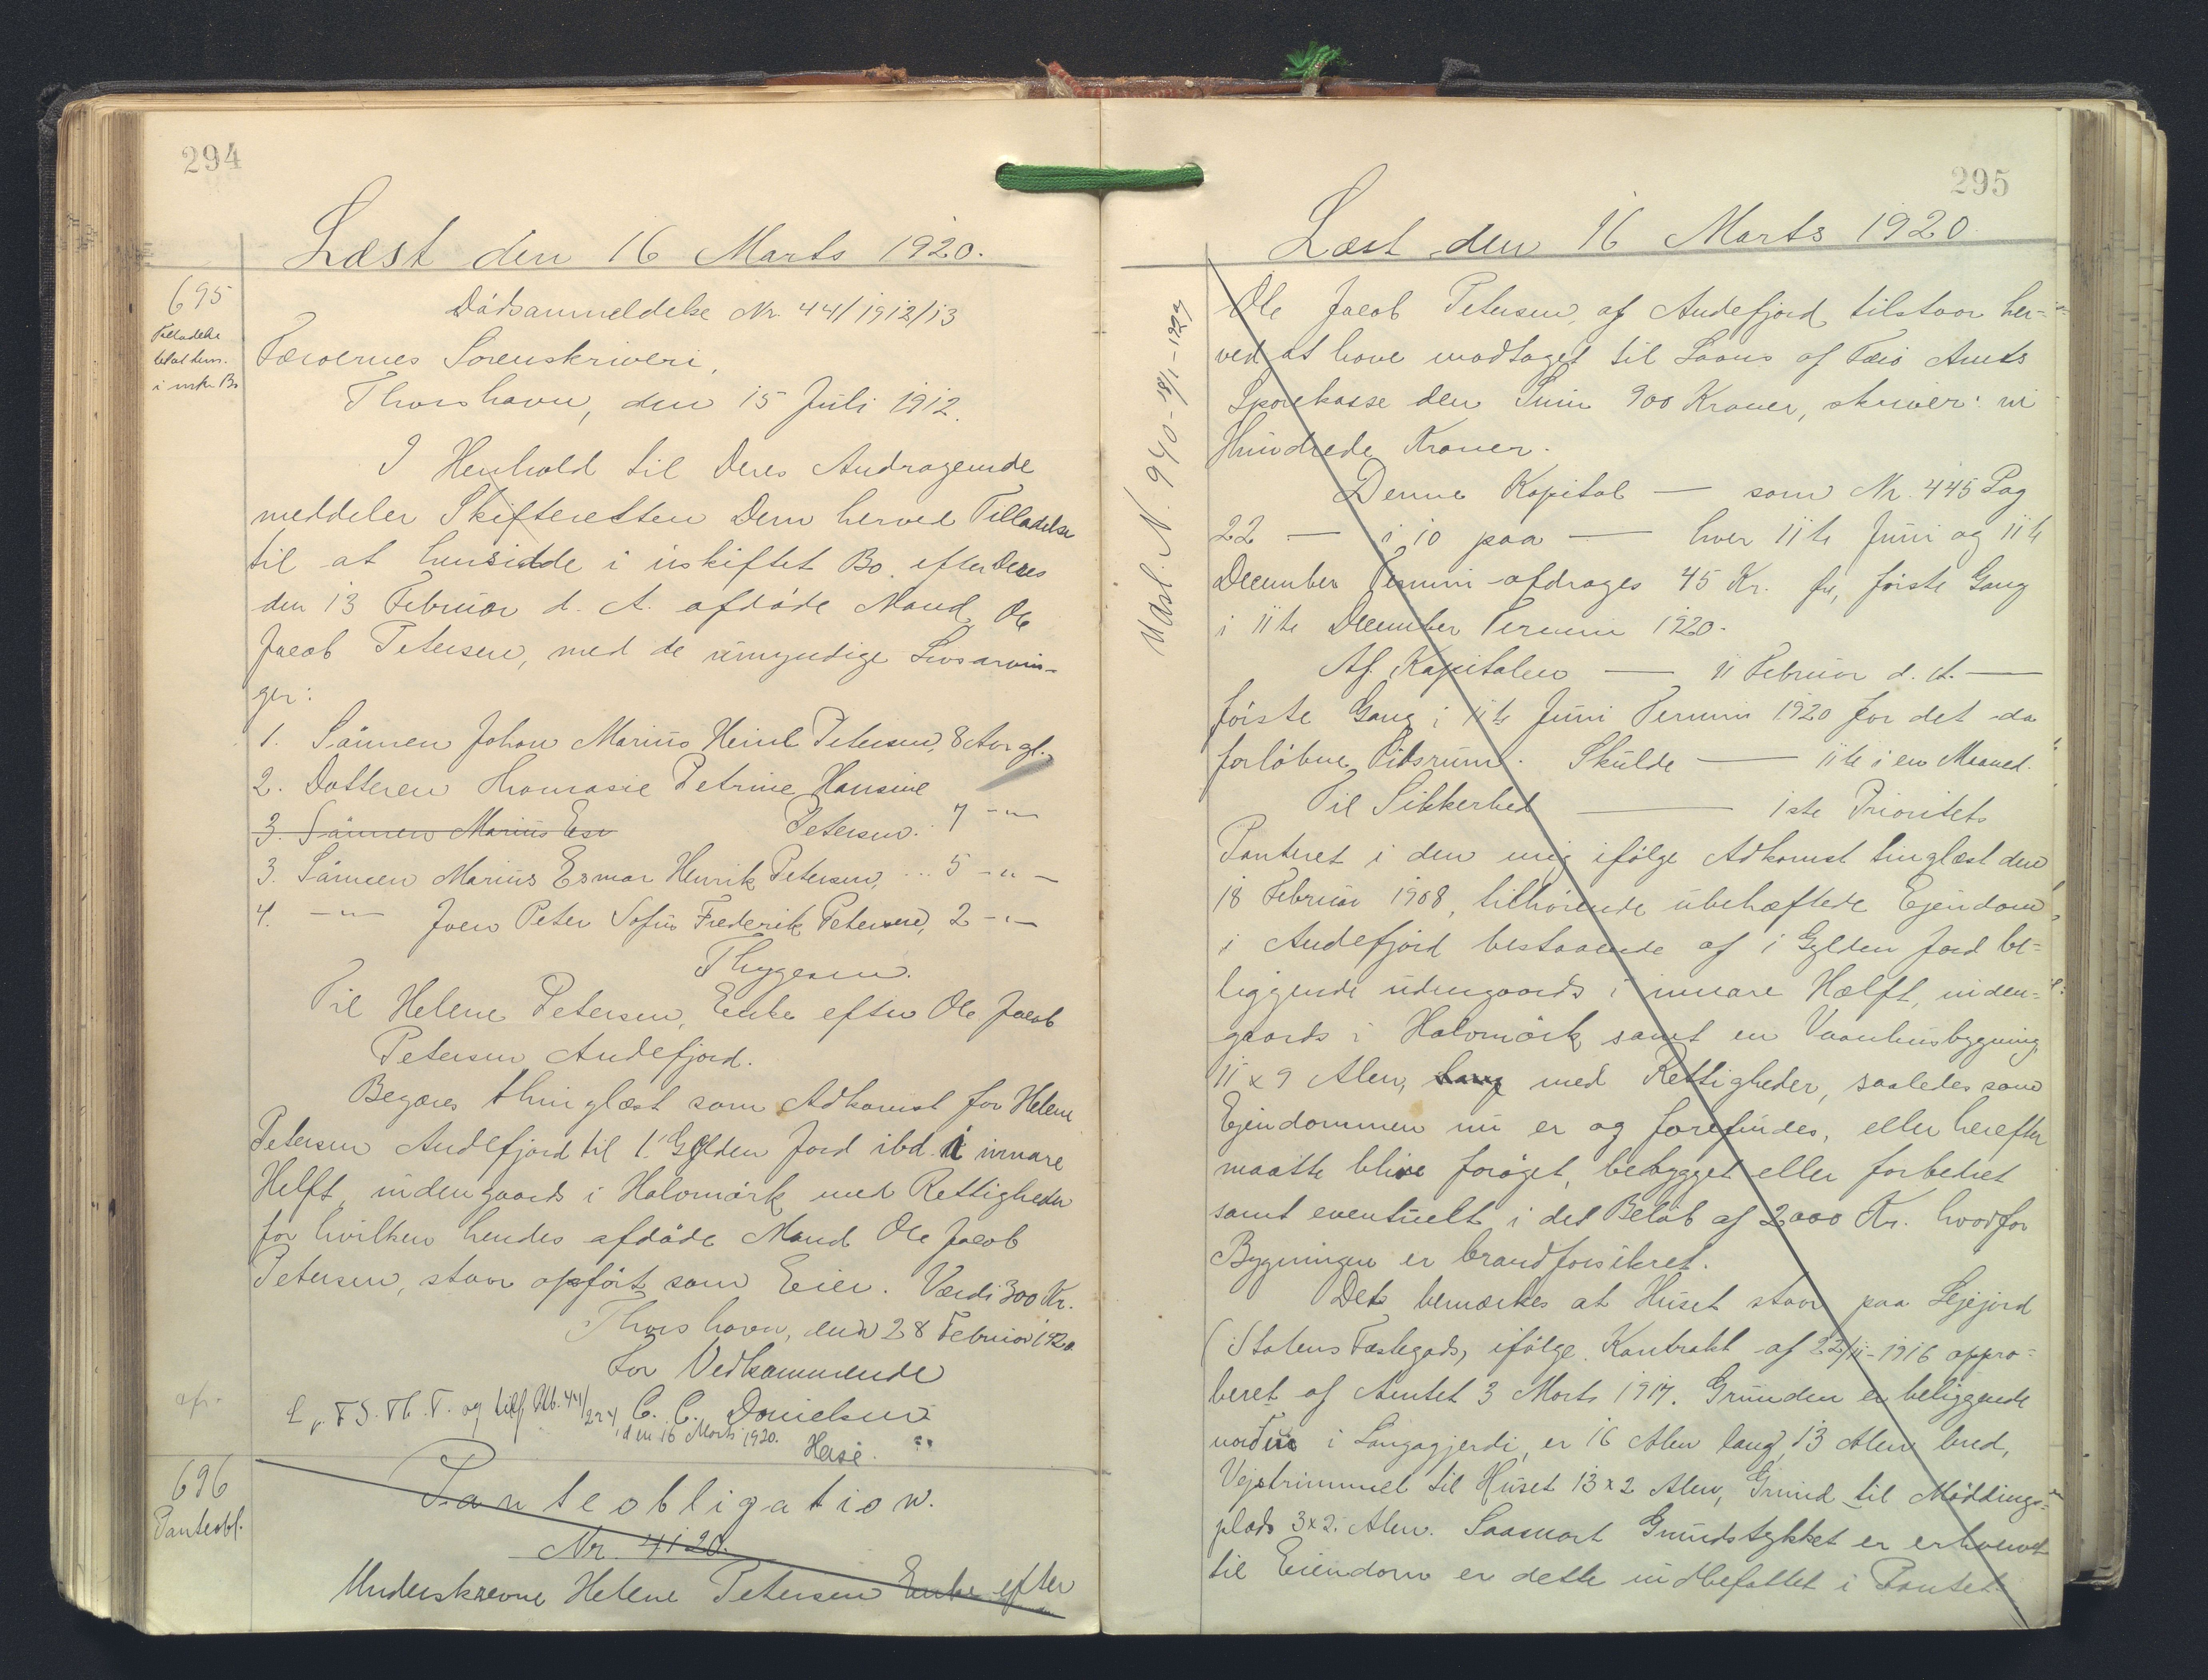 294
Læst den 16 Marts 1920.
695
Tilladelse
Dödsanmeldelse Nr. 44/1912/13
Færøernes Sorenskriveri,
Thorshavn, den 15 Juli 1912.
I Henhold til Deres Andragende
meddeler Skifteretten Dem herved Tilladelse
til at hensidde i uskiftet Bo efter Deres
den 13 Februar d. A. afdöde Mand, Ole
Jacob Petersen, med de umyndige Livsarvin-
ger:
1. Sönnen Johan Marius Heinl Petersen, 8 Aar gl.
2. Datteren Thomasie Petrine Hansine
3. Sönnen Marius Es Petersen. 7 -"-
3. Sönnen Marius Esmar Henrik Petersen, ... 5 -"-
4. -"- Joen Peter Sofus Frederik Petersen, 2 -"-
Thygesen.
Til Helene Petersen, Enke efter Ole Jacob
Petersen Andefjord.
Begæres thinglæst som Adkomst for Helene
Petersen Andefjord til 1 Gylden Jord ibd. i innare
Helft, indengaards i Halomörk med Rettigheder
for hvilken hendes afdöde Mand Ole Jacob
Petersen, staar opfört som Eier. Værdi 300 Kr.
Thorshavn, den 28 Februar 1920
For Vedkommende
C. C. Danielsen
den 16 Marts 1920.
696
Panteobl.
Panteobligation.
Nr. 4120.
Underskrevne Helene Petersen Enke efter
295
Læst den 16 Marts 1920.
Ole Jacob Petersen, af Andefjord tilstaar her=
ved at have modtaget til Laans af Færö Amts
Sparekasse den Sum 900 Kroner, skriver ni
Hundrede Kroner.
Denne Kapital — som Nr. 445 Pag
22 — i 10 paa — hver 11te Juni og 11te
December Termin afdrages 45 Kr. förste Gang
i 11te December Termin 1920.
Af Kapitalen — 11 Februar d. A. —
förste Gang i 11te Juni Termin 1920 for det da
forlöbne Tidsrum. Skulde — 11te i en Maaned.
Til Sikkerhed — 1ste Prioritets
Panteret i den mig ifölge Adkomst tinglæst den
18 Februar 1908, tilhörende ubehæftede Ejendom
i Andefjord bestaaende af 1 Gylden Jord be=
liggende udengaards i innare Hælft, inden=
gaards i Halomörk samt en Vaanhusbygning,
11 x 9 Alen, lang med Rettigheder, saaledes som
Ejendommen nu er og forefindes, eller herefter
maatte blive foröget, bebygget eller forbedret
samt eventuelt i det Belöb af 2000 Kr. hvorfor
Bygningen er brandforsikret.
Det bemærkes at Huset staar paa Lejejord
(Statens Fæstegods, ifölge Kontrakt af 22/11-1916 appro=
beret af Amtet 3 Marts 1917. Grunden er beliggende
i Langagjerdi, er 16 Alen lang, 13 Alen bred,
Vejstrimmel til Huset 13 x 2 Alen, Grund til Möddings=
plads 3x2. Alen. Saasnart Grundstykket er erhvervet
til Eiendom er dette indbefattet i Pantet.